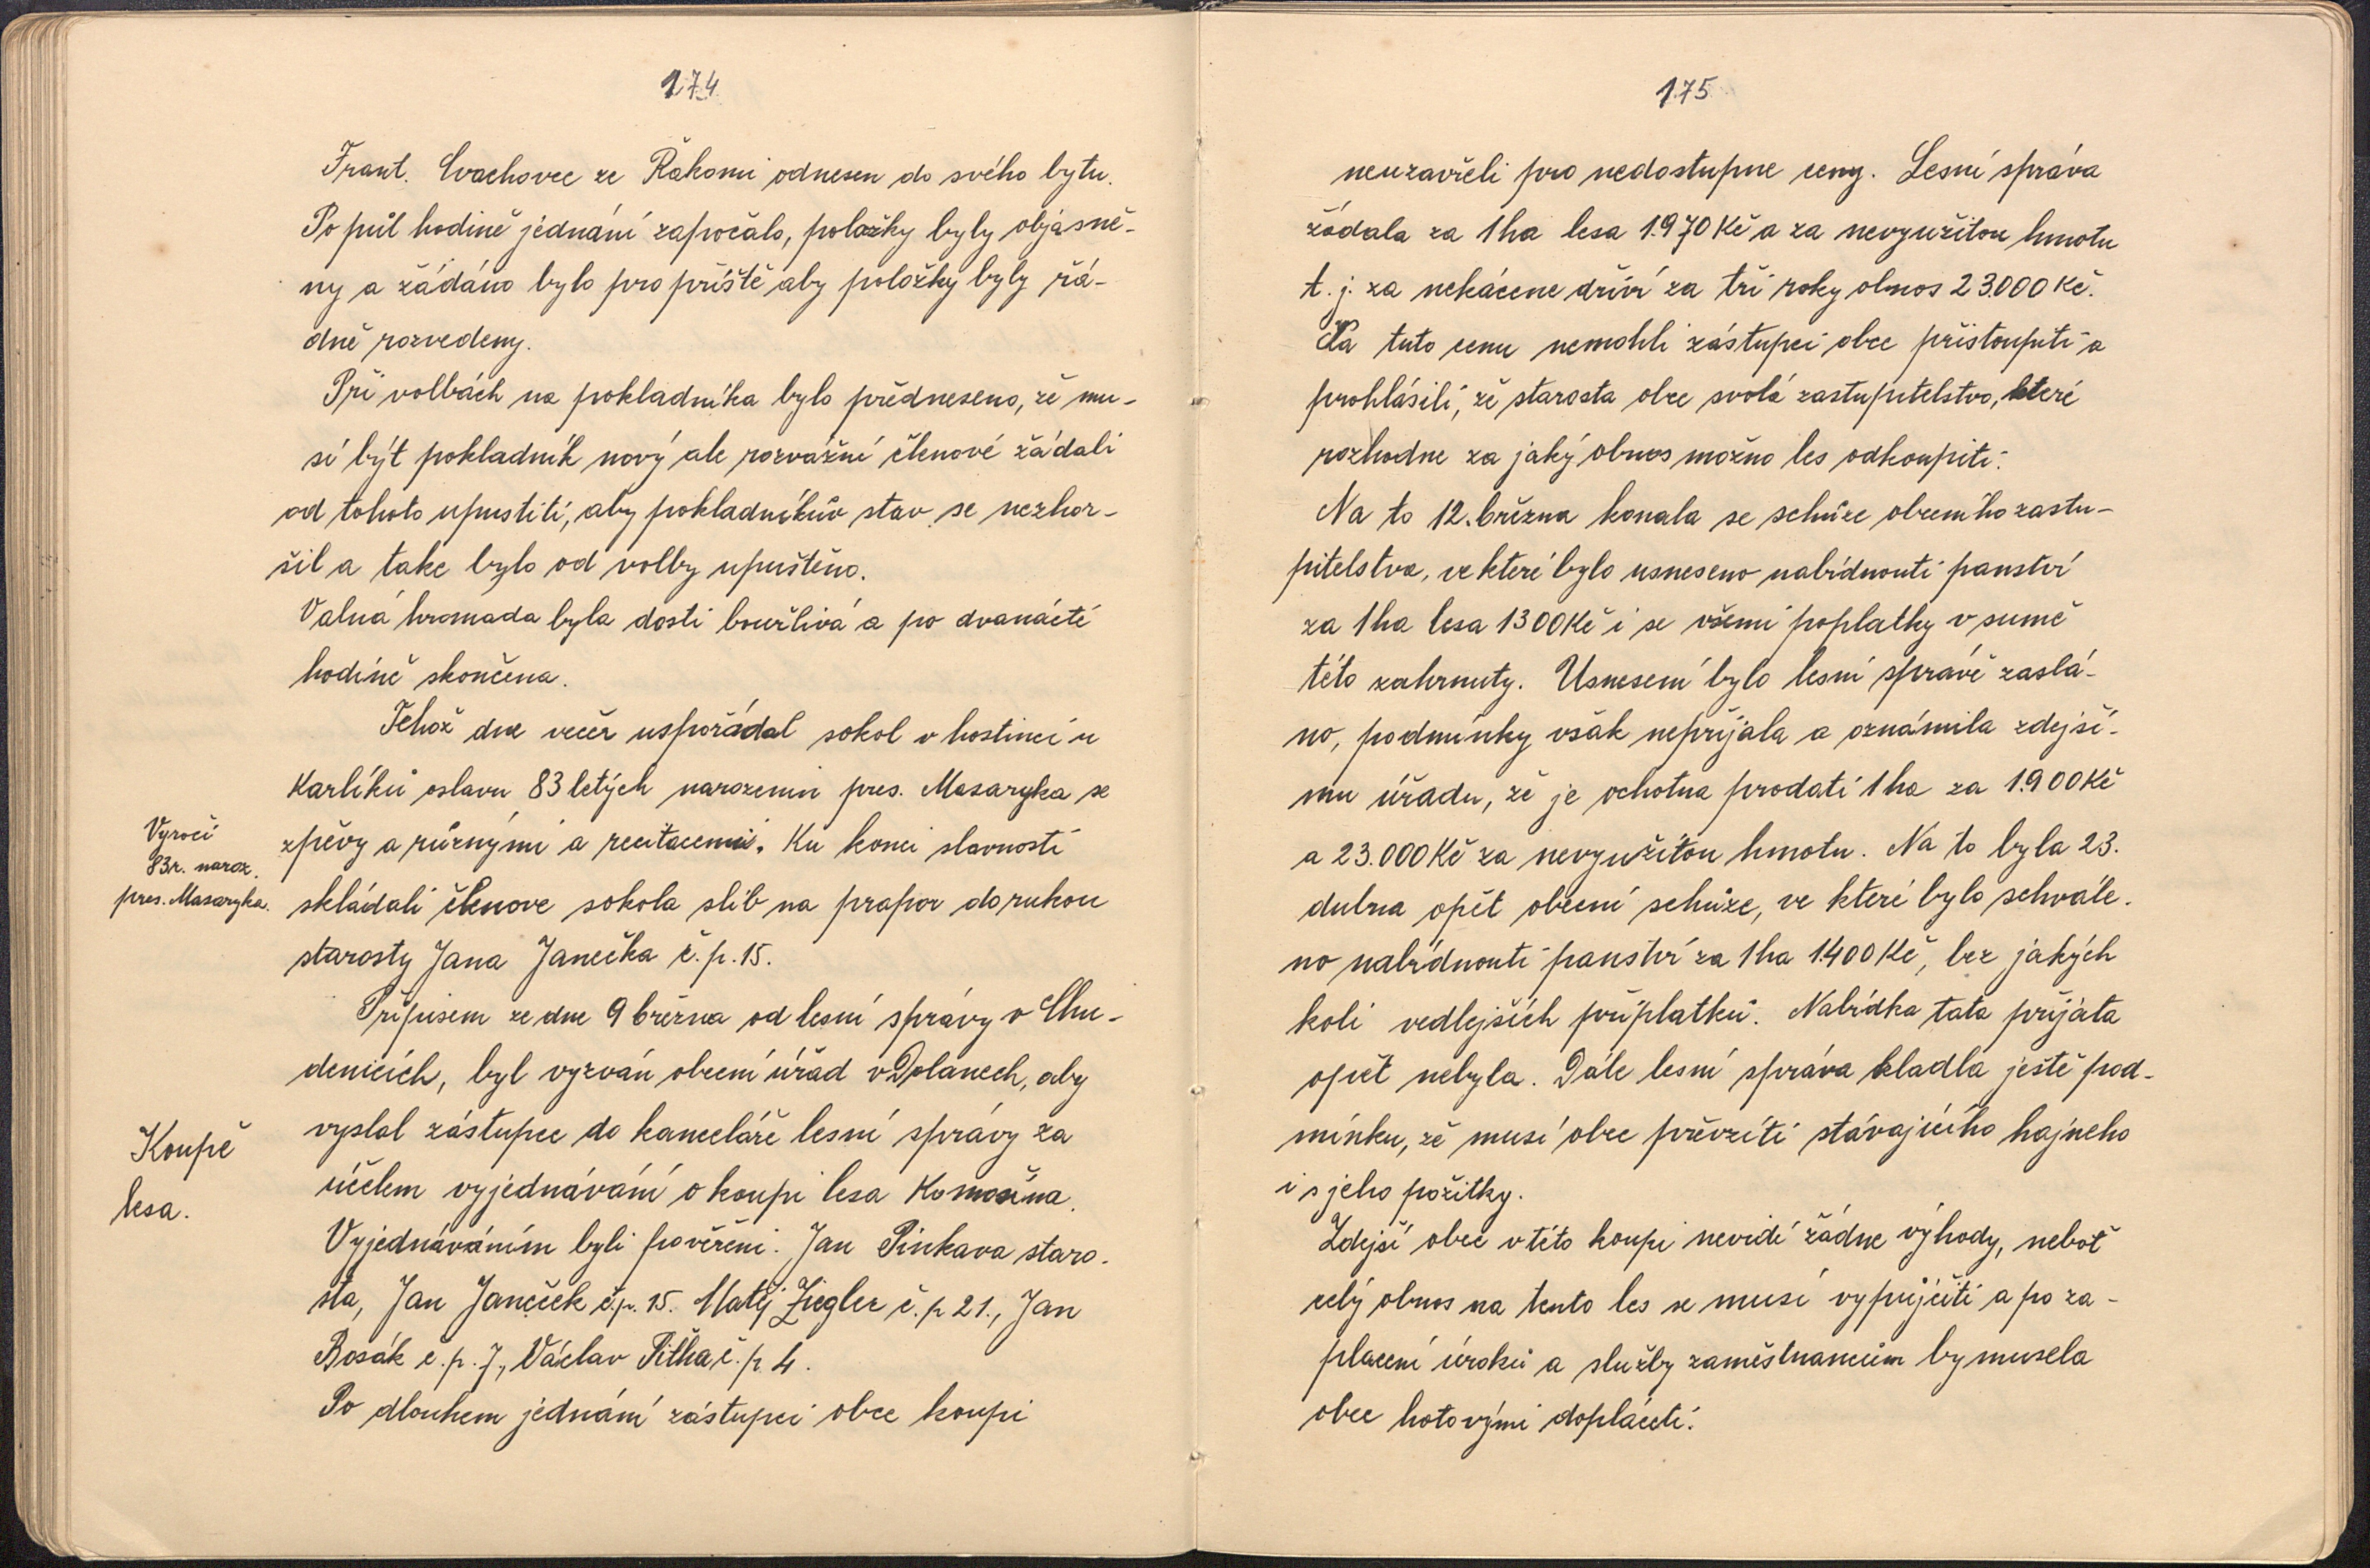 174
Frant. Cvachovec ze Řakomi odnesen do svého bytu.
Po půl hodině jednání započalo, položky byly objasně-
ny a žádáno bylo pro příště aby položky byly řá-
dně rozvedeny.
Při volbách na pokladníka bylo předneseno, že mu-
sí být pokladník nový ale rozvážní členové žádali
od tohoto upustiti, aby pokladníkův stav se nezhor-
šil a take bylo od volby upuštěno.
Valná hromada byla dosti bouřlivá a po dvanácté
hodině skončena.
Tehož dne večer uspořádal sokol v hostinci u
Karlíků oslavu 83 letých narozenin pres. Masaryka se
zpěvy a různými a recitacemi. Ku konci slavnosti
Vyročí
83r. naroz.
pres. Masaryka.
skládali členove sokola slib na prapor do rukou
starosty Jana Janečka č.p. 15.
Přípisem ze dne 9 března od lesní správy v Chu-
denicích, byl vyzván obecní úřad v Dolanech, aby
vyslal zástupce do kanceláře lesní správy za
Koupě
lesa.
účelem vyjednávání o koupi lesa Komošína.
Vyjednáváním byli pověřeni. Jan Pinkava staro-
sta, Jan Janeček č.p. 15. Matěj Ziegler č.p 21., Jan
Bosák č.p. 7, Václav Pitha, č.p 4.
Po dlouhem jednání zástupci obce koupi
175
neuzavřeli pro nedostupne ceny. Lesní správa
žádala za 1 ha lesa 1.970 Kč a za nevyužitou hmotu
t.j. za nekácene dříví za tři roky obnos 23.000 Kč.
Na tuto cenu nemohli zástupci obce přistoupiti a
prohlásili, že starosta obce svolá zastupitelstvo, které
rozhodne za jaký obnos možno les odkoupiti.
Na to 12. března konala se schůze obecního zastu-
pitelstva, ve které bylo usneseno nabídnouti panství
za 1 ha lesa 1300 Kč i se všemi poplatky v sumě
této zahrnuty. Usnesení bylo lesní správě zaslá-
no, podmínky však nepřijala a oznámila zdejší-
mu úřadu, že je ochotna prodati 1 ha za 1.900 Kč
a 23.000 Kč za nevyužitou hmotu. Na to byla 23.
dubna opět obecní schůze, ve které bylo schvále-
no nabídnouti panství za 1 ha 1.400 Kč, bez jakých
koli vedlejších příplatků. Nabídka tata přijata
opět nebyla. Dále lesní správa kladla ještě pod-
mínku, že musí obce převzíti stávajícího hajneho
i s jeho požitky.
Zdejší obec v této koupi nevidí žádne výhody, neboť
celý obnos na tento les se musí vypůjčiti a po za-
placení úroků a služby zaměstnancům by musela
obec hotovými dopláceti.